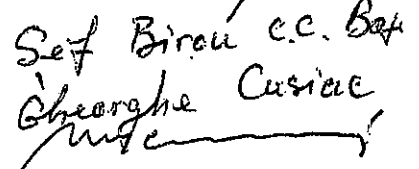 Șef Birou C.C.
Gheorghe Cusiac